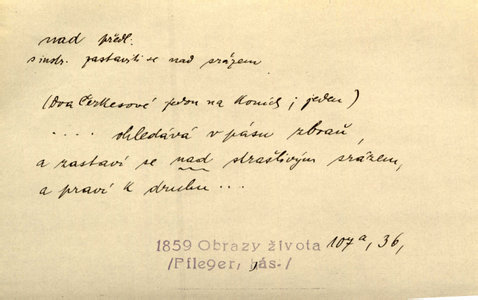 nad předl.
s instr. zastaviti se nad srázem
(Dva Čerkesové jedou na koních; jeden)
.... ohledává v pásu zbraň,
a zastaví se nad strašlivým srázem,
a praví k druhu ...
1859 Obrazy života 107a, 36,
/Pfleger, bás./